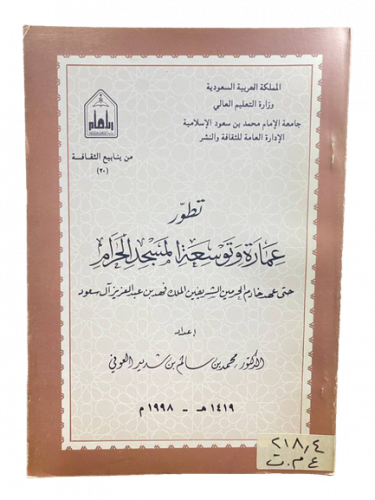 المملكة العربية السعودية
وزارة التعليم العالي
جامعة الإمام محمد بن سعود الإسلامية
الإدارة العامة للثقافة والنشر
من ينابيع الثقافة
(٢٠)
تطوّر
عمارة وتوسعة المسجد الحرام
حتى عهد خادم الحرمين الشريفين الملك فهد بن عبد العزيز آل سعود
إعداد
الدكتور محمد بن سالم بن شديد العوفي
١٤١٩ هـ - ١٩٩٨ م
٢١٨,٤
ع م . ت